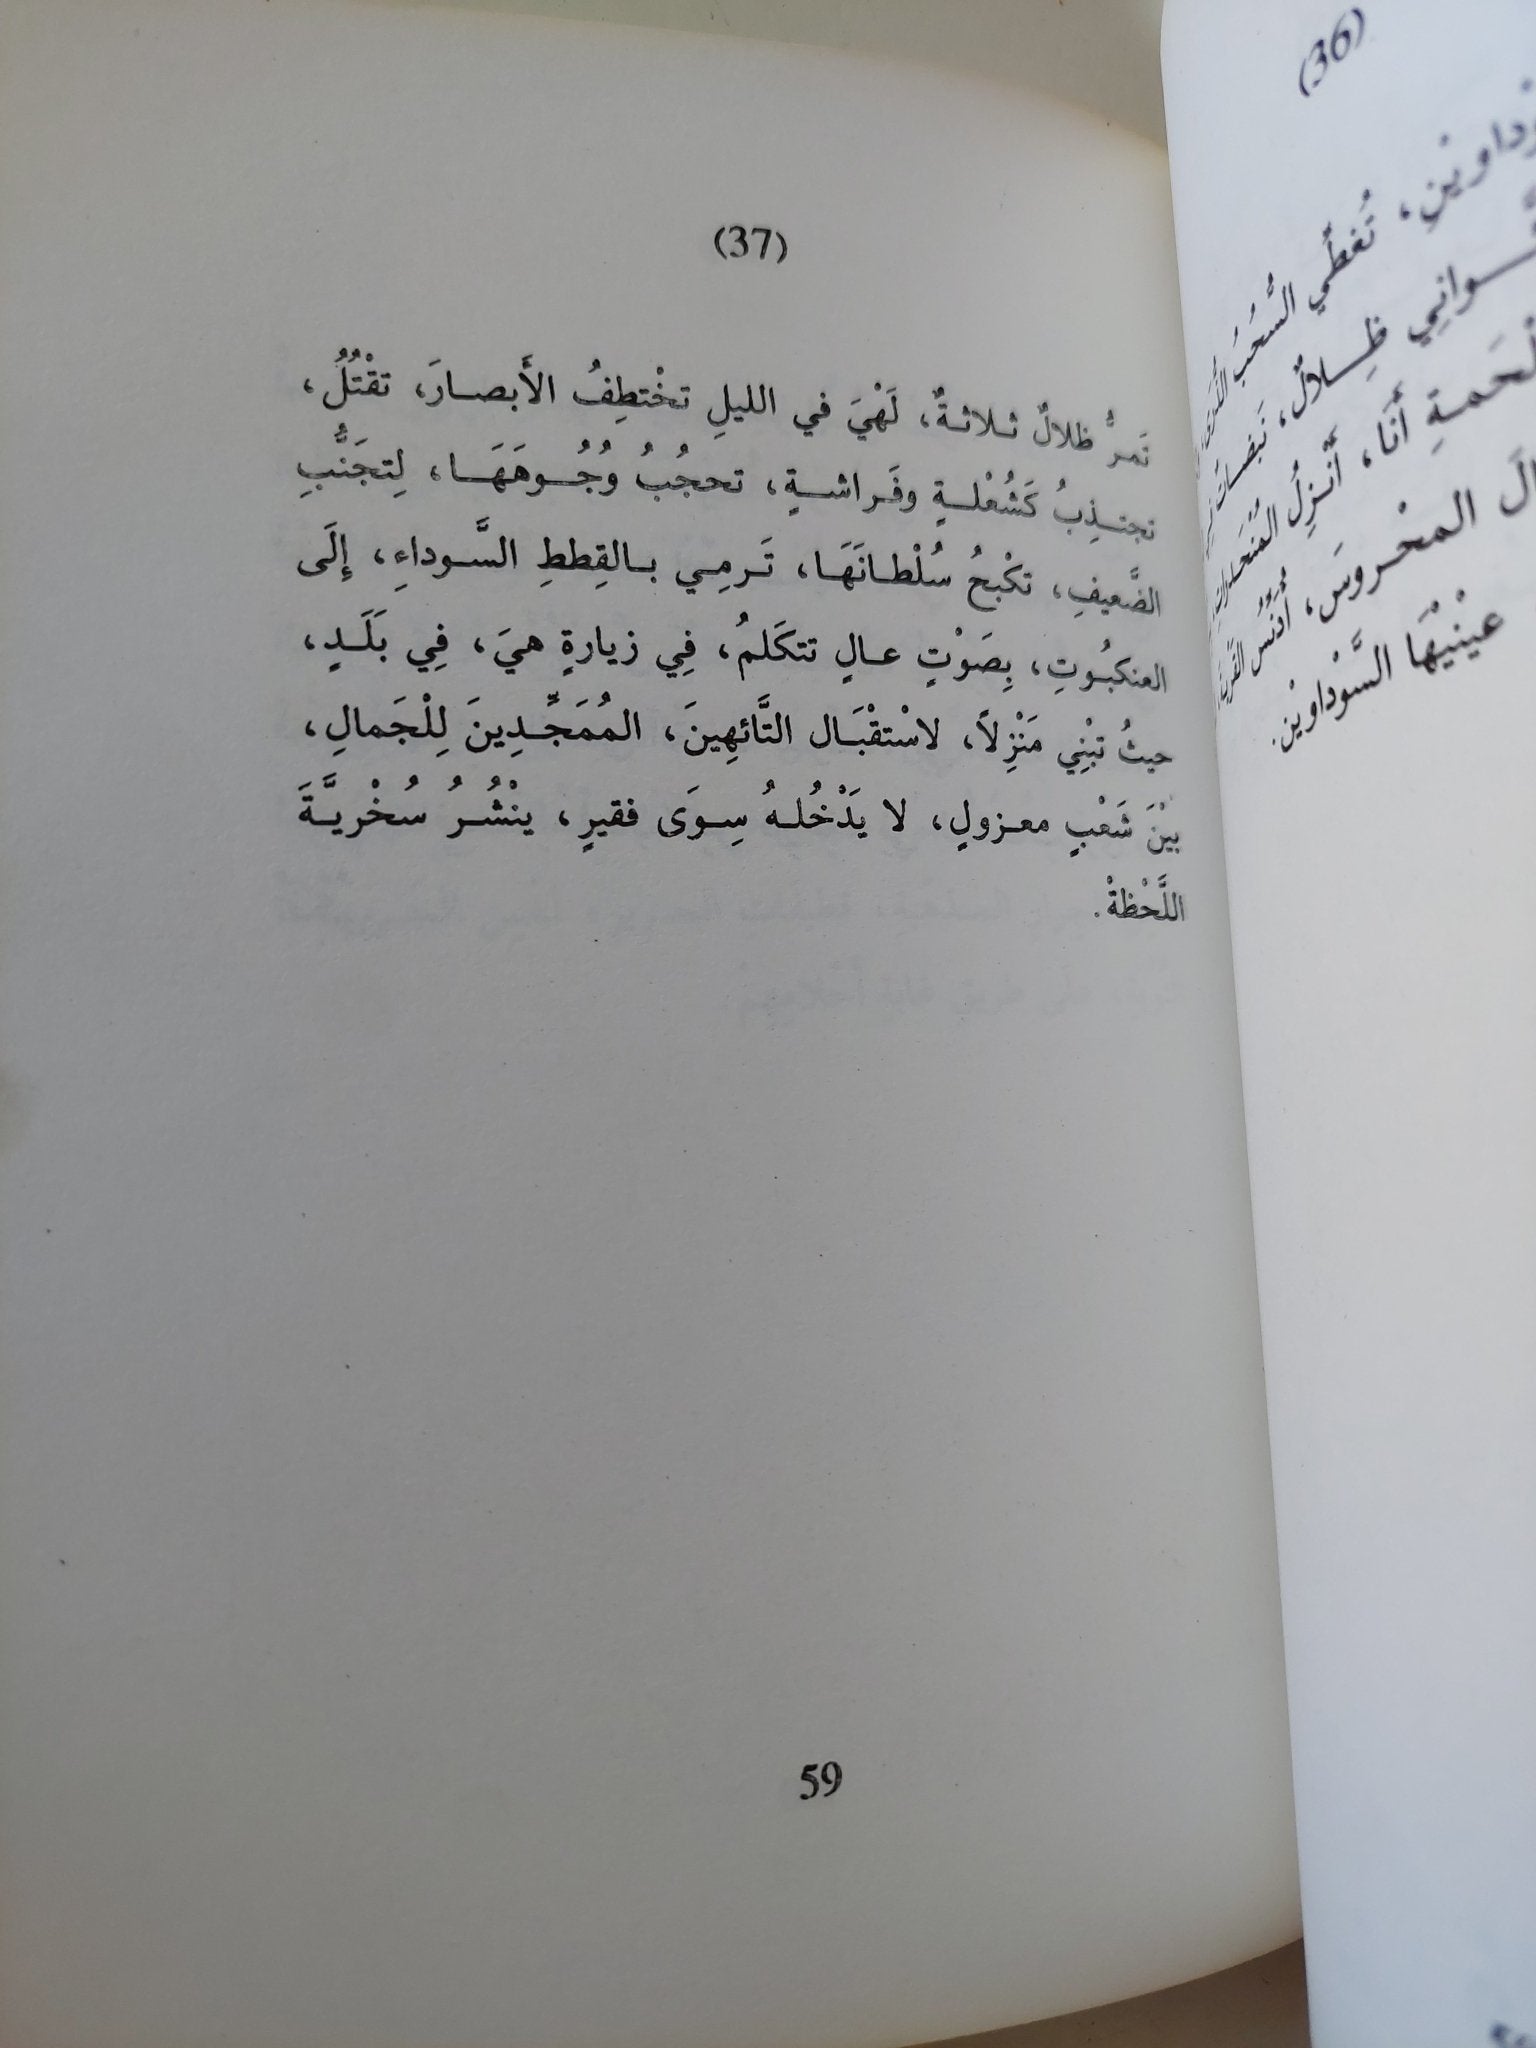 (37)
تَمرُّ ظلالٌ ثلاثةٌ، لَهْيَ في الليلِ تخْتطِفُ الأَبصارَ، تقْتُلُ،
تجتذِبُ كَشُعْلةٍ وفَراشةٍ، تحجُبُ وُجُوهَهَا، لِتجَنُّبِ
الضَّعيفِ، تكْبحُ سُلْطانَهَا، تَرمِي بالقِططِ السَّوداءِ، إِلَى
العنكبُوتِ، بِصَوْتٍ عالٍ تتكَلمُ، فِي زيارةٍ هيَ، فِي بَلَدٍ،
حيثُ تبْنِي مَنْزِلاً، لاسْتقْبَال التَّائهِينَ، المُمَجِّدِينَ لِلْجَمالِ،
بيْنَ شَعْبٍ معزولٍ، لا يَدْخُلهُ سِوَى فقيرٍ، ينْشُرُ سُخْريَّةَ
اللَّحْظةْ.
59
(36)
تُغطِّي السُّحُبُ
ظِلالٌ،
أَنَا، أَنْزِلُ المُنْحَدراتِ
المحْروسَ،
عينيْهَا السَّوْداوين.